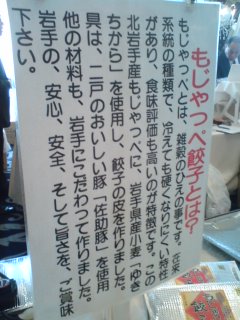 もじゃっぺ餃子とは?
もじゃっぺとは、雑穀のひえの事です。在来
系統の種類で、冷えても硬くなりにくい特性
があり、食味評価も高いのが特徴です。この
北岩手産もじゃっぺに、岩手県産小麦「ゆき
ちから」を使用し、餃子の皮を作りました。
具は、二戸のおいしい豚「佐助豚」を使用
他の材料も、岩手にこだわって作りました。
岩手の、安心、安全、そして旨さを、ご賞味
下さい。